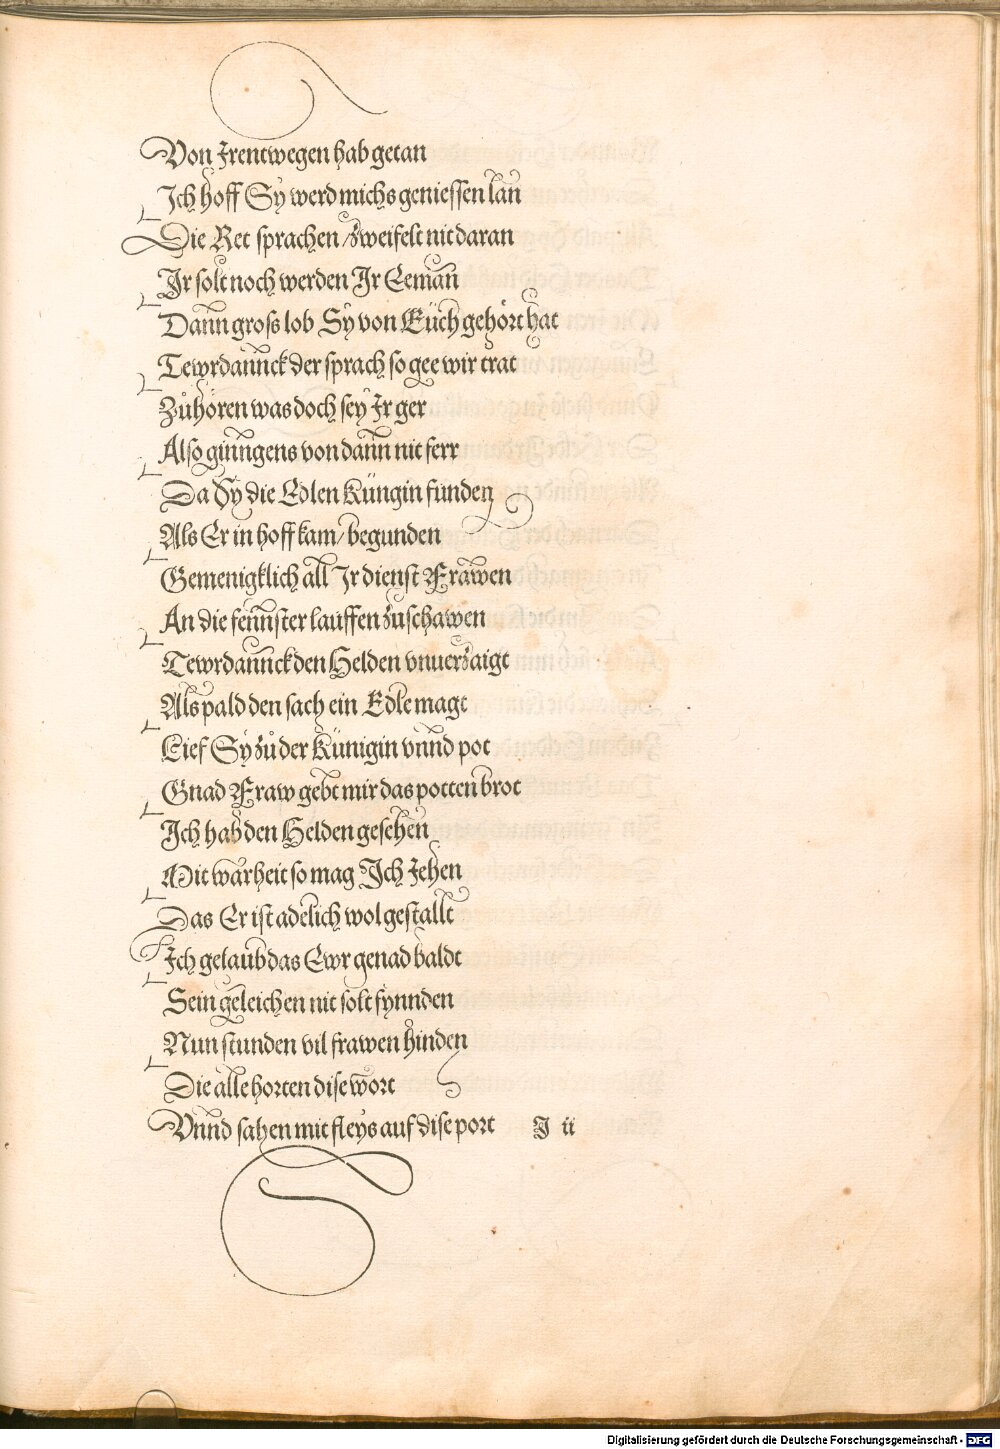 Von Irentwegen hab getan
Ich hoff Sÿ werd michs geniessen lan
Die Ret sprachen / zweifelt nit daran
Ir solt noch werden Ir Leman
Dann gross lob Sÿ von Eüch gehört hat
Tewrdannck der sprach so gee wir trat
Zůhören was doch seÿ Ir ger
Also ginngens von dann nit ferr
Da Sy die Edlen Küngin funden
Als Er in hoff kam / begunden
Gemenigklich all Ir dienst Frawen
An die fennster lauffen zuschawen
Tewrdannck den Helden vnuerzaigt
Als pald den sach ein Edle magt
Lief Sÿ zů der Künigin vnnd pot
Gnad Fraw gebt mir das potten brot
Ich hab den Helden gesehen
Mit warheit so mag Ich Iehen
Das Er ist adelich wol gestallt
Ich gelaub das Ewr genad baldt
Sein geleichen nit solt fynnden
Nun stunden vil frawen hinden
Die alle horten dise wort
Vnnd sahen mit fleys auf dise port I ii
Digitalisierung gefördert durch die Deutsche Forschungsgemeinschaft - DFG